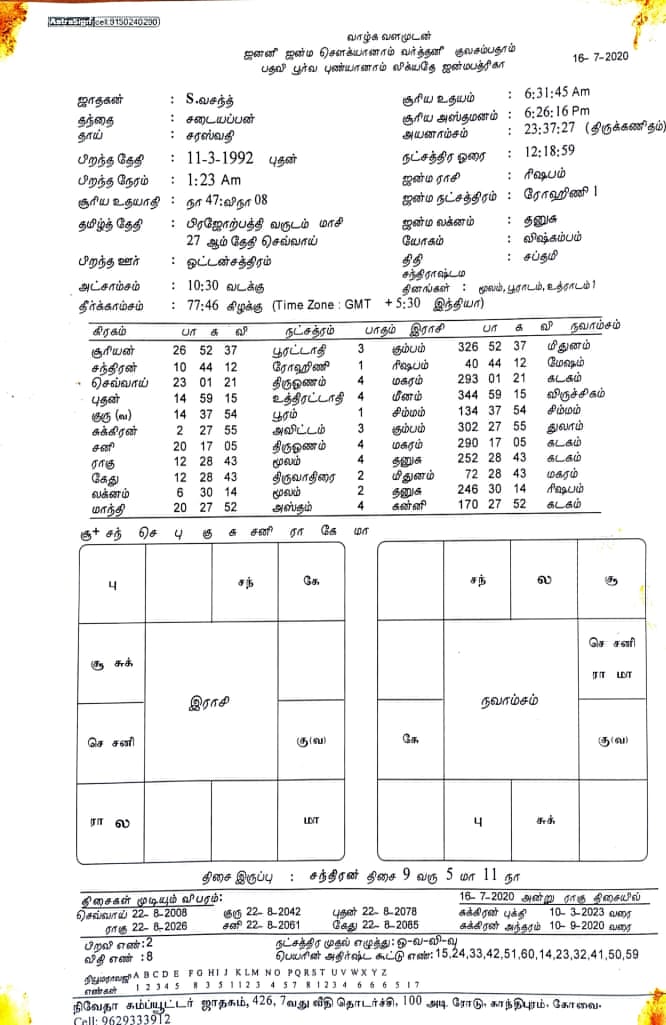 AstroSign cell:9150240290
வாழ்க வளமுடன்
ஜனனீ ஜன்ம சௌக்யானாம் வர்த்தனி குலசம்பதாம்
பதவி பூர்வ புண்யானாம் லிக்யதே ஜன்மபத்ரிகா
16- 7-2020
ஜாதகன் : S.வசந்த் சூரிய உதயம் : 6:31:45 Am
தந்தை : சடையப்பன் சூரிய அஸ்தமனம் : 6:26:16 Pm
தாய் : சரஸ்வதி அயனாம்சம் : 23:37:27 (திருக்கணிதம்)
பிறந்த தேதி : 11-3-1992 புதன் நட்சத்திர ஓரை : 12:18:59
பிறந்த நேரம் : 1:23 Am ஜன்ம ராசி : ரிஷபம்
சூரிய உதயாதி : நா 47:விநா 08 ஜன்ம நட்சத்திரம் : ரோஹிணி 1
தமிழ்த் தேதி : பிரஜோற்பத்தி வருடம் மாசி ஜன்ம லக்னம் : தனுசு
27 ஆம் தேதி செவ்வாய் யோகம் : விஷ்கம்பம்
பிறந்த ஊர் : ஒட்டன்சத்திரம் திதி : சப்தமி
அட்சாம்சம் : 10:30 வடக்கு சந்திராஷ்டம தினங்கள் : மூலம், பூராடம், உத்ராடம் 1
தீர்க்காம்சம் : 77:46 கிழக்கு (Time Zone : GMT + 5:30 இந்தியா)
கிரகம் பா க வி நட்சத்ரம் பாதம் இராசி பா க வி நவாம்சம்
சூரியன் 26 52 37 பூரட்டாதி 3 கும்பம் 326 52 37 மிதுனம்
சந்திரன் 10 44 12 ரோஹிணி 1 ரிஷபம் 40 44 12 மேஷம்
செவ்வாய் 23 01 21 திருஓணம் 4 மகரம் 293 01 21 கடகம்
புதன் 14 59 15 உத்திரட்டாதி 4 மீனம் 344 59 15 விருச்சிகம்
குரு (வ) 14 37 54 பூரம் 1 சிம்மம் 134 37 54 சிம்மம்
சுக்கிரன் 2 27 55 அவிட்டம் 3 கும்பம் 302 27 55 துலாம்
சனி 20 17 05 திருஓணம் 4 மகரம் 290 17 05 கடகம்
ராகு 12 28 43 மூலம் 4 தனுசு 252 28 43 கடகம்
கேது 12 28 43 திருவாதிரை 2 மிதுனம் 72 28 43 மகரம்
லக்னம் 6 30 14 மூலம் 2 தனுசு 246 30 14 ரிஷபம்
மாந்தி 20 27 52 அஸ்தம் 4 கன்னி 170 27 52 கடகம்
சூ+ சந் செ பு கு சு சனி ரா கே மா
பு சந் கே
சூ சுக்
செ சனி கு(வ)
ரா ல மா
இராசி
சந் ல சூ
செ சனி
ரா மா
கே கு(வ)
பு சுக்
நவாம்சம்
திசை இருப்பு : சந்திரன் திசை 9 வரு 5 மா 11 நா
திசைகள் முடியும் விபரம்: 16- 7-2020 அன்று ராகு திசையில்
செவ்வாய் 22- 8-2008 குரு 22- 8-2042 புதன் 22- 8-2078 சுக்கிரன் புக்தி 10- 3-2023 வரை
ராகு 22- 8-2026 சனி 22- 8-2061 கேது 22- 8-2085 சுக்கிரன் அந்தரம் 10- 9-2020 வரை
பிறவி எண்:2 நட்சத்திர முதல் எழுத்து: ஒ-வ-வி-வு
விதி எண் :8 பெயரின் அதிர்ஷ்ட கூட்டு எண்:15,24,33,42,51,60,14,23,32,41,50,59
நியூமராலஜி A B C D E F G H I J K L M N O P Q R S T U V W X Y Z
எண்கள் 1 2 3 4 5 8 3 5 1 1 2 3 4 5 7 8 1 2 3 4 6 6 6 5 1 7
நிவேதா கம்ப்யூட்டர் ஜாதகம், 426, 7வது வீதி தொடர்ச்சி, 100 அடி ரோடு, காந்திபுரம், கோவை.
Cell: 9629333912